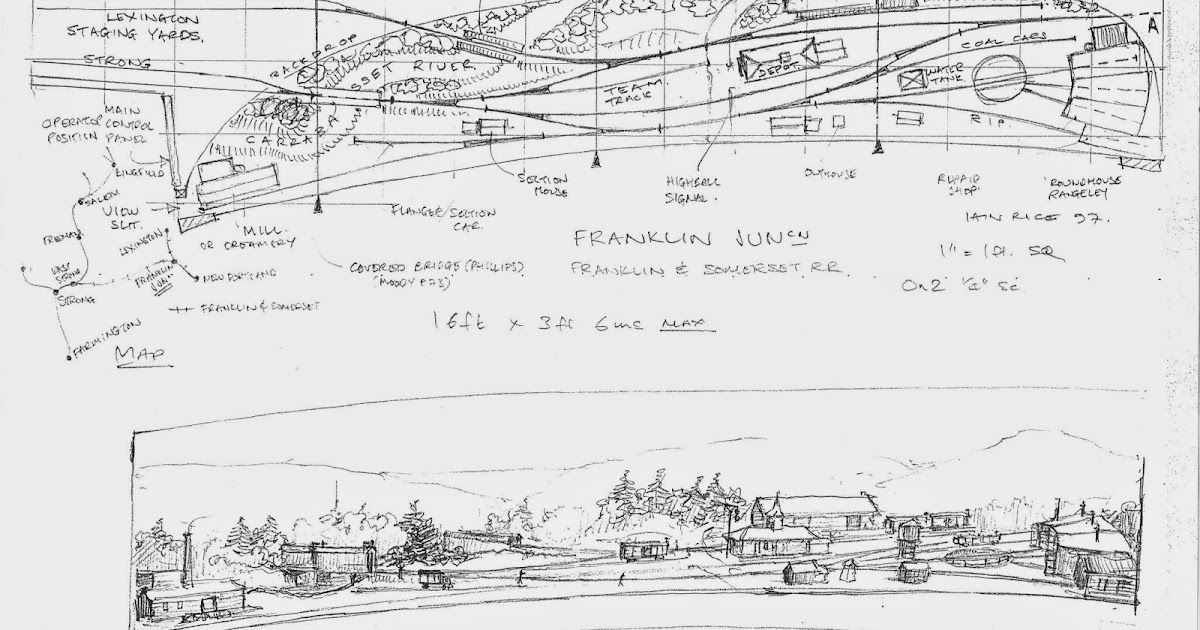 LEXINGTON
STAGING YARDS.
STRONG
BACKDROP
SET RIVER
CARRABA
TEAM
TRACK
DEPOT
WATER
TANK
COAL CARS
A
RIP
OPERATOR
POSITION
MAIN
CONTROL
PANEL
KINGFIELD
SALEM
VIEW
SLIT.
FREEMAN
LEXINGTON
EAST
STRONG
STRONG
FRANKLIN
JUNC
NEW PORTLAND
FRANKLIN & SOMERSET
FARMINGTON
MAP
'MILL.
OR CREAMERY
FLANGER/SECTION
CAR.
COVERED BRIDGE (PHILLIPS)
(MOODY P73)
SECTION
HOUSE
HIGHBALL
SIGNAL.
OUTHOUSE
REPAIR
SHOP
'ROUNDHOUSE
RANGELEY
IAIN RICE 97.
FRANKLIN JUNCN
FRANKLIN & SOMERSET RR.
1" = 1ft. SQ
On2 ¼" SC
16ft x 3ft 6ins MAX